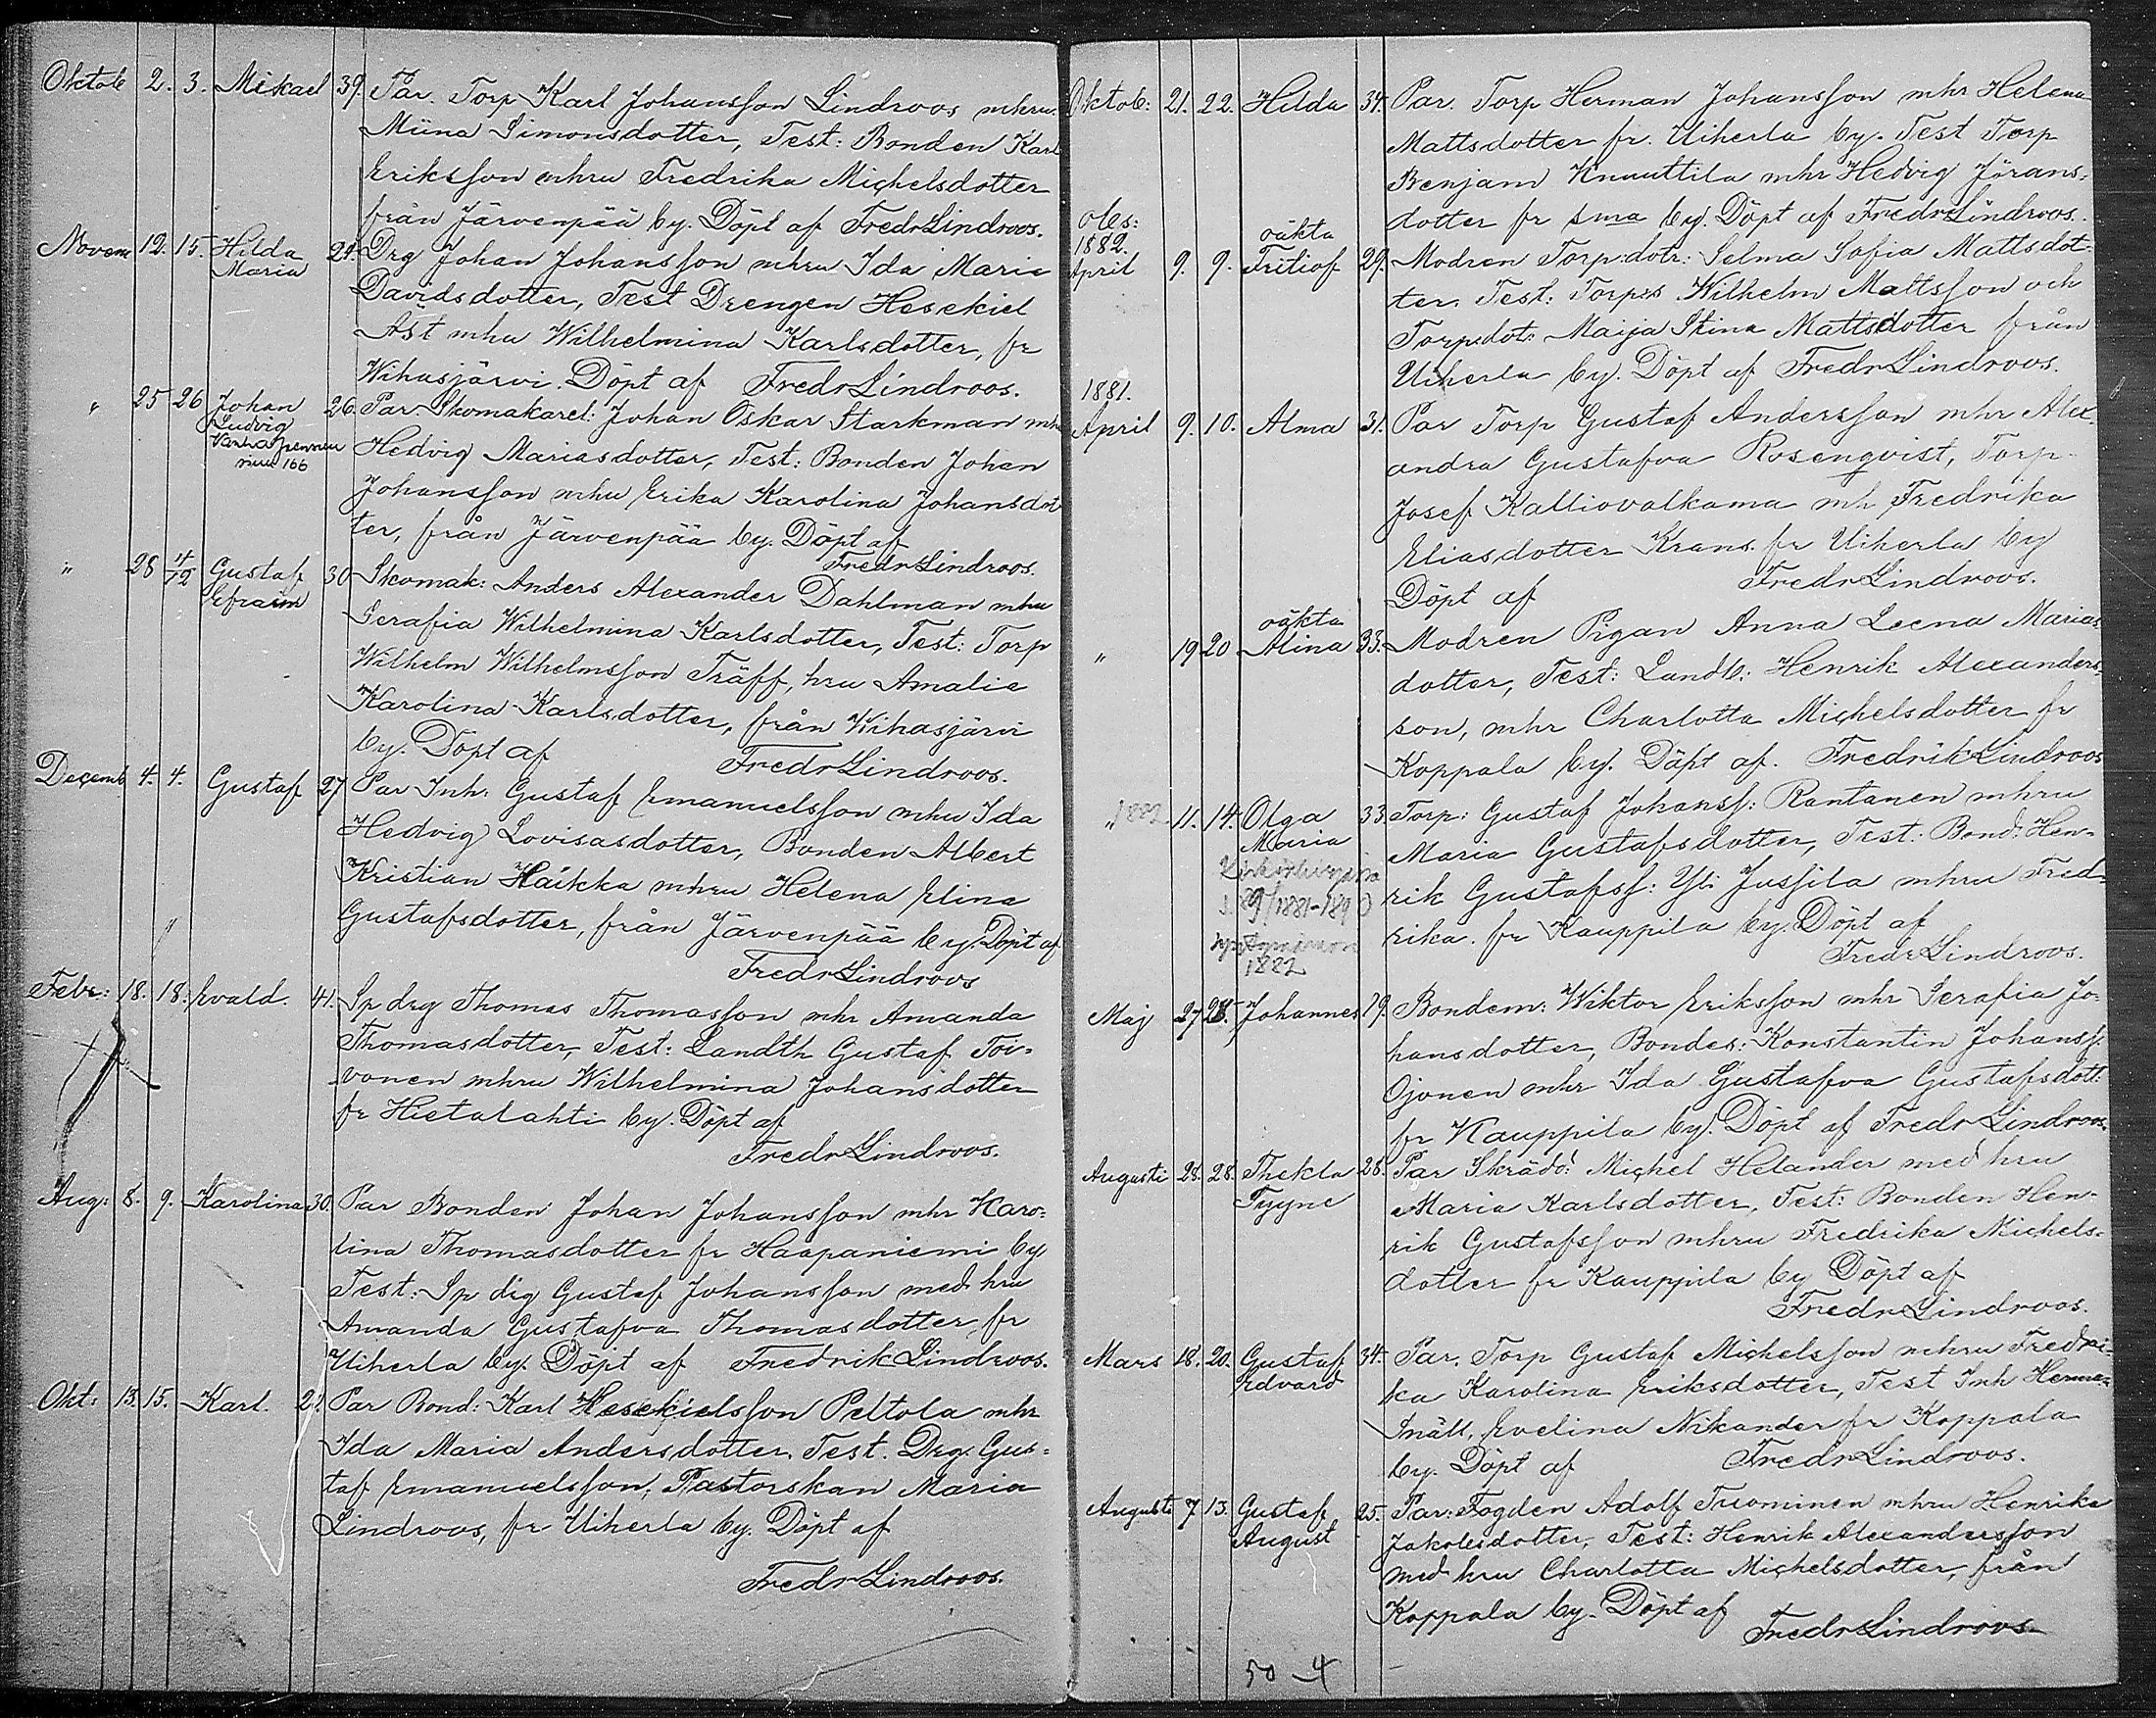 Oktob 2. 3. Mikael 39. Par. Torp Karl Johansson Lindroos mhru.
Miina Simonsdotter, Test: Bonden Karl
Eriksson mhru Fredrika Michelsdotter
från Järvenpää by. Döpt af Fredr Lindroos.
Novem 12. 15. Hilda 24. Drg Johan Johansson mhru Ida Maria
Maria
Davidsdotter, Test Drengen Hesekiel
Ast mhu Wilhelmina Karlsdotter, fr
Wihasjärvi. Döpt af Fredr Lindroos.
" 25 26 Johan 26. Par. Skomakarel: Johan Oskar Starkman mh
Ludvig
Hedvig Mariasdotter, Test: Bonden Johan
166
Johansson mhu Erika Karolina Johansdot
ter, från Järvenpää by. Döpt af
Fredr Lindroos.
" 28 4/12 Gustaf 30 Skomak: Anders Alexander Dahlman mhu
Efraim
Serafia Wilhelmina Karlsdotter, Test: Torp
Wilhelm Wilhelmsson Träff, hru Amalia
Karolina Karlsdotter, från Wihasjärvi
by. Döpt af Fredr Lindroos.
Decemb 4. 4. Gustaf 27 Par Inh: Gustaf Emanuelsson mhu Ida
Hedvig Lovisasdotter, Bonden Albert
Kristian Haikka mhru Helena Elina
Gustafsdotter, från Järvenpää by. Döpt af
Fredr Lindroos
Febr: 18. 18. Evald. 41. Sp drg Thomas Thomasson mhr Amanda
Thomasdotter, Test: Landth Gustaf Toi=
vonen mhru Wilhelmina Johansdotter
fr Hietalahti by. Döpt af
Fredr Lindroos.
Aug: 8. 9. Karolina 30. Par Bonden Johan Johansson mhr Karo=
lina Thomasdotter fr Haapaniemi by
Test: Sp drg Gustaf Johansson med hru
Amanda Gustafva Thomasdotter fr
Uiherla by. Döpt af Fredrik Lindroos.
Okt: 13. 15. Karl. Par Bond: Karl Hesekielsson Peltola mhr
Ida Maria Andersdotter. Test. Drg. Gus=
taf Emanuelsson, Pastorskan Maria
Lindroos, fr Uiherla by. Döpt af
Fredr Lindroos.
Oktob: 21. 22. Hilda 34. Par. Torp Herman Johansson mhr Helena
Mattsdotter fr. Uiherla by. Test Torp
Benjam Knuuttila mhr Hedvig Jörans=
dotter fr sma by. Döpt af Fredr Lindroos.
oles:
1882.
oäkta
April 9. 9. Fritiof 29. Modren Torp:dotr: Selma Sofia Mattsdot=
ter. Test: Torps Wilhelm Mattsson och
Torpsdot: Maija Stina Mattsdotter från
Uiherla by. Döpt af Fredr Lindroos.
1881.
April 9. 10. Alma 31. Par Torp Gustaf Andersson mhr Alex=
andra Gustafva Rosenqvist, Torp
Josef Kalliovalkama mh Fredrika
Eliasdotter Krans. fr Uiherla by
Döpt af Fredr Lindroos.
oäkta
" 19 20 Alina 33. Modren Pigan Anna Leena Marias
dotter, Test: Landb: Henrik Alexanders
son, mhr Charlotta Michelsdotter fr
Koppala by. Döpt af. Fredrik Lindroos
" 1882 11. 14. Olga 33 Torp: Gustaf Johanss: Rantanen mhru
Maria
Maria Gustafsdotter, Test: Bond: Hen=
rik Gustafss: Yli Jussila mhru Fred=
/1881-1890
rika. fr Kauppila by. Döpt af
1882
Fredr Lindroos.
Maj 27 28. Johannes 19. Bondem: Wiktor Eriksson mhr Serafia Jo=
hansdotter, Bondes: Konstantin Johanss.
Ojonen mhr Ida Gustafva Gustafsdott:
fr Kauppila by. Döpt af Fredr Lindroos.
Augusti 28. 28. Thekla 28. Par Skrädd: Michel Helander med hru
Tyyne
Maria Karlsdotter, Test: Bonden Hen=
rik Gustafsson mhru Fredrika Michels=
dotter fr Kauppila by Döpt af
Fredr Lindroos.
Mars 18. 20. Gustaf 34. Par. Torp Gustaf Michelsson mhru Fredri=
Edvard
ka Karolina Eriksdotter, Test Inh Herman
Snäll, Evelina Nikander fr Koppala
by. Döpt af Fredr Lindroos.
Augusti 7 13. Gustaf 25. Par: Fogden Adolf Tuominen mhru Henrika
August
Jakobsdotter, Test: Henrik Alexandersson
med hru Charlotta Michelsdotter, från
Koppala by. Döpt af Fredr Lindroos.
50 4